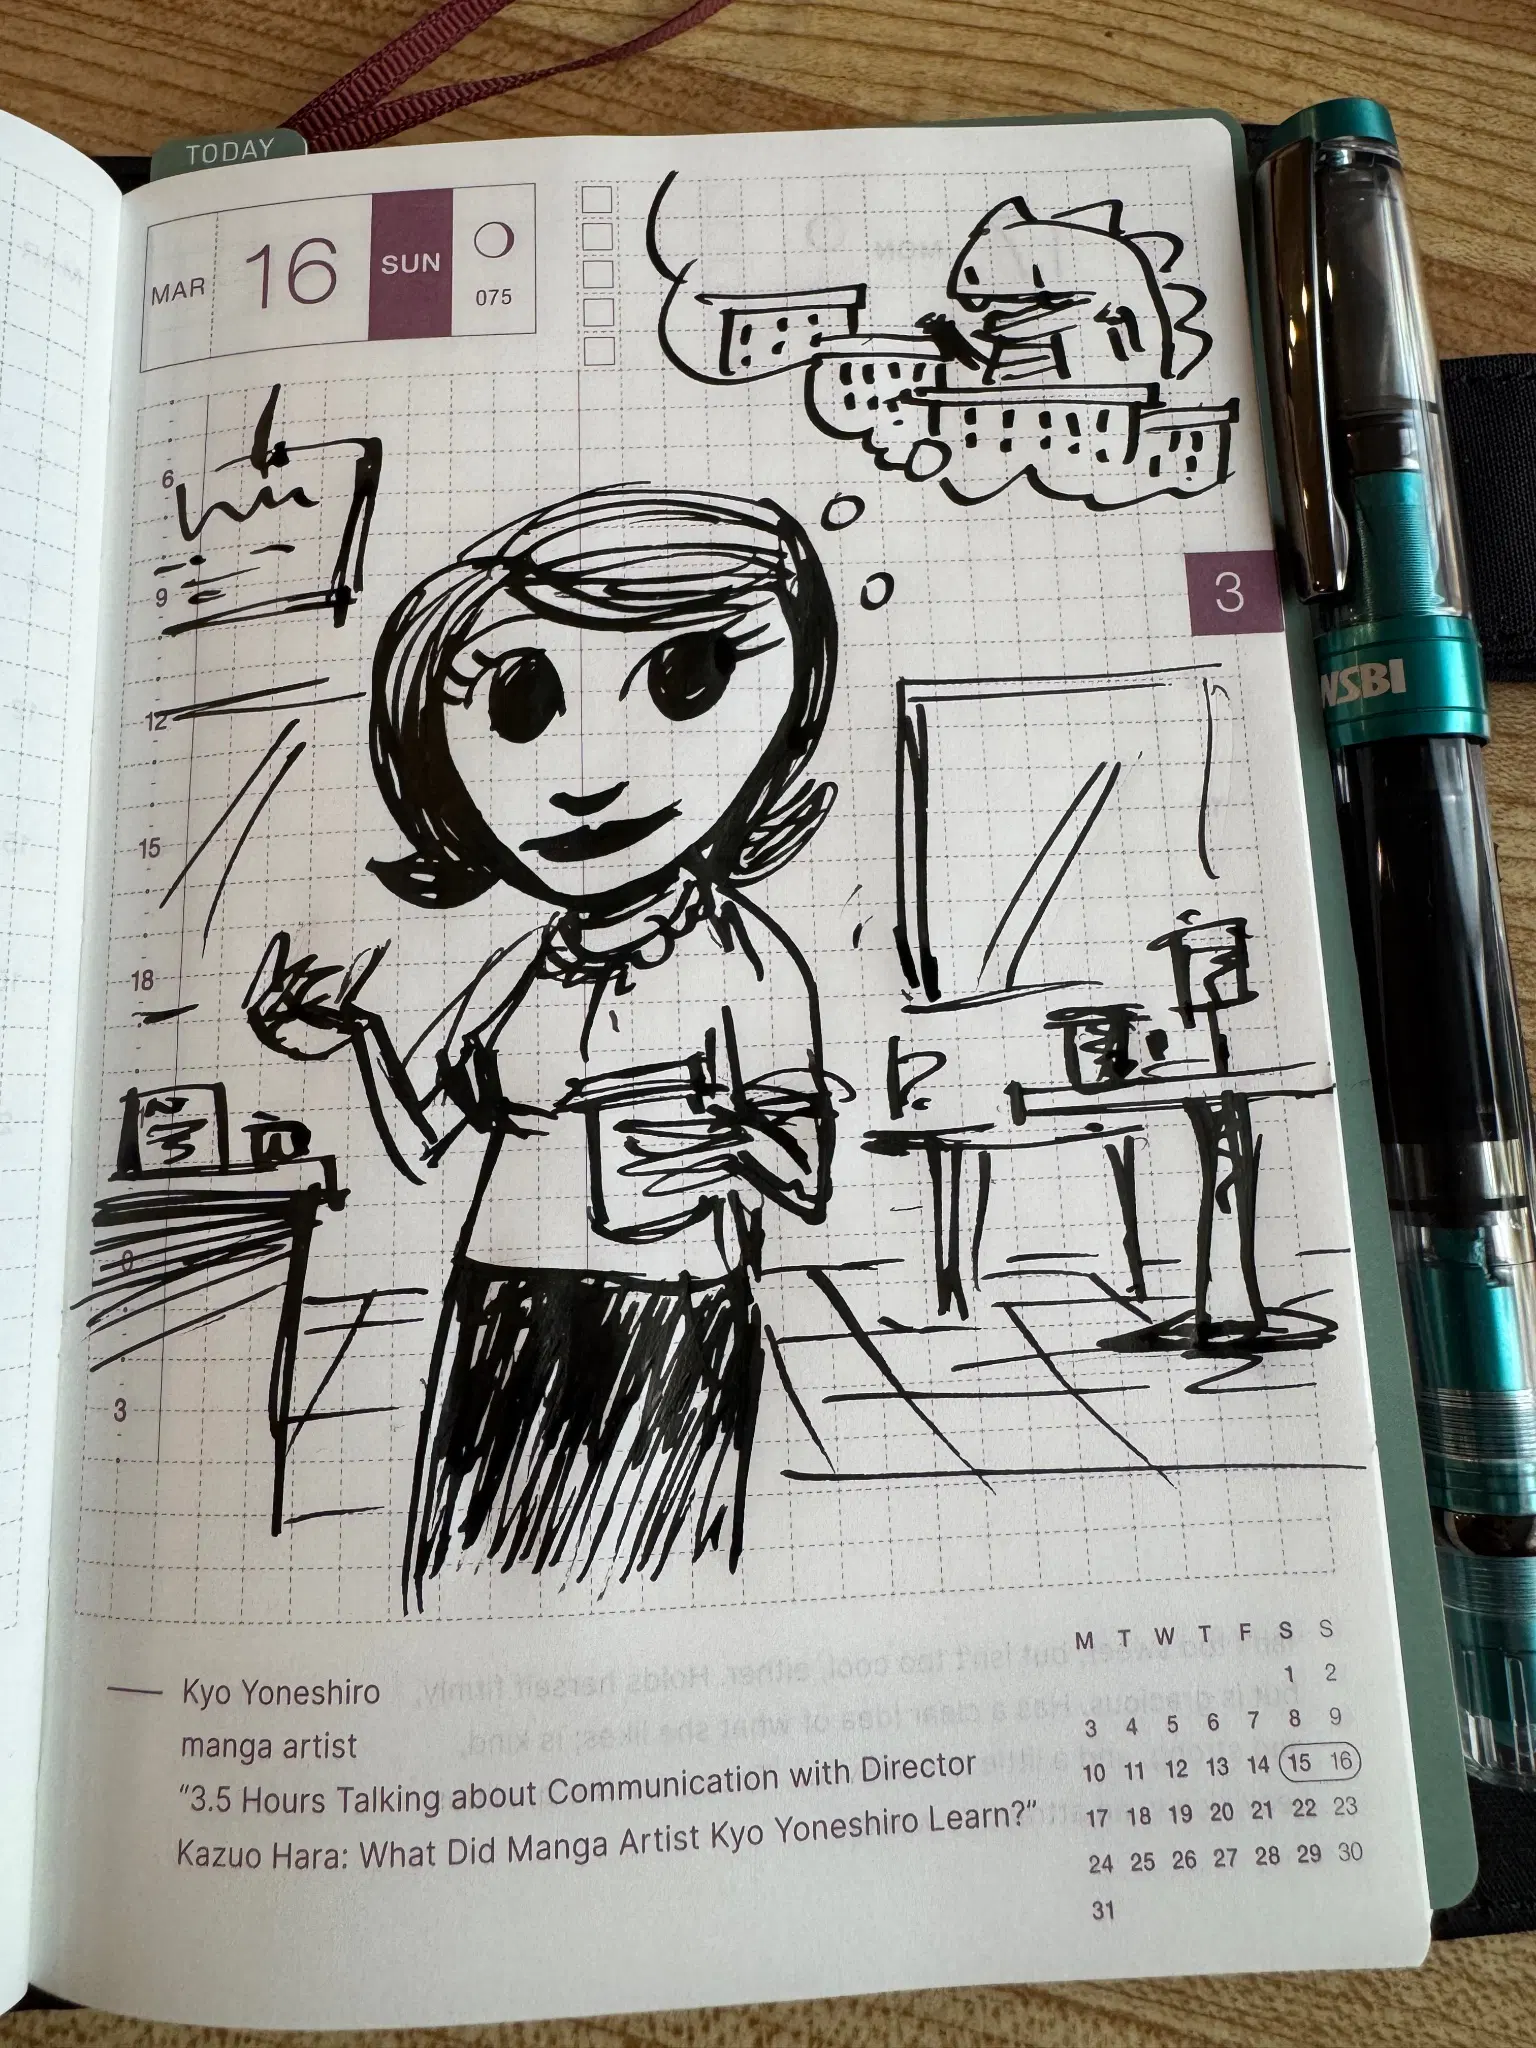 TODAY
MAR 16 SUN 075
3
6
9
12
15
18
0
3
— Kyo Yoneshiro
manga artist
“3.5 Hours Talking about Communication with Director
Kazuo Hara: What Did Manga Artist Kyo Yoneshiro Learn?”
M T W T F S S
1 2
3 4 5 6 7 8 9
10 11 12 13 14 15 16
17 18 19 20 21 22 23
24 25 26 27 28 29 30
31
WSBI